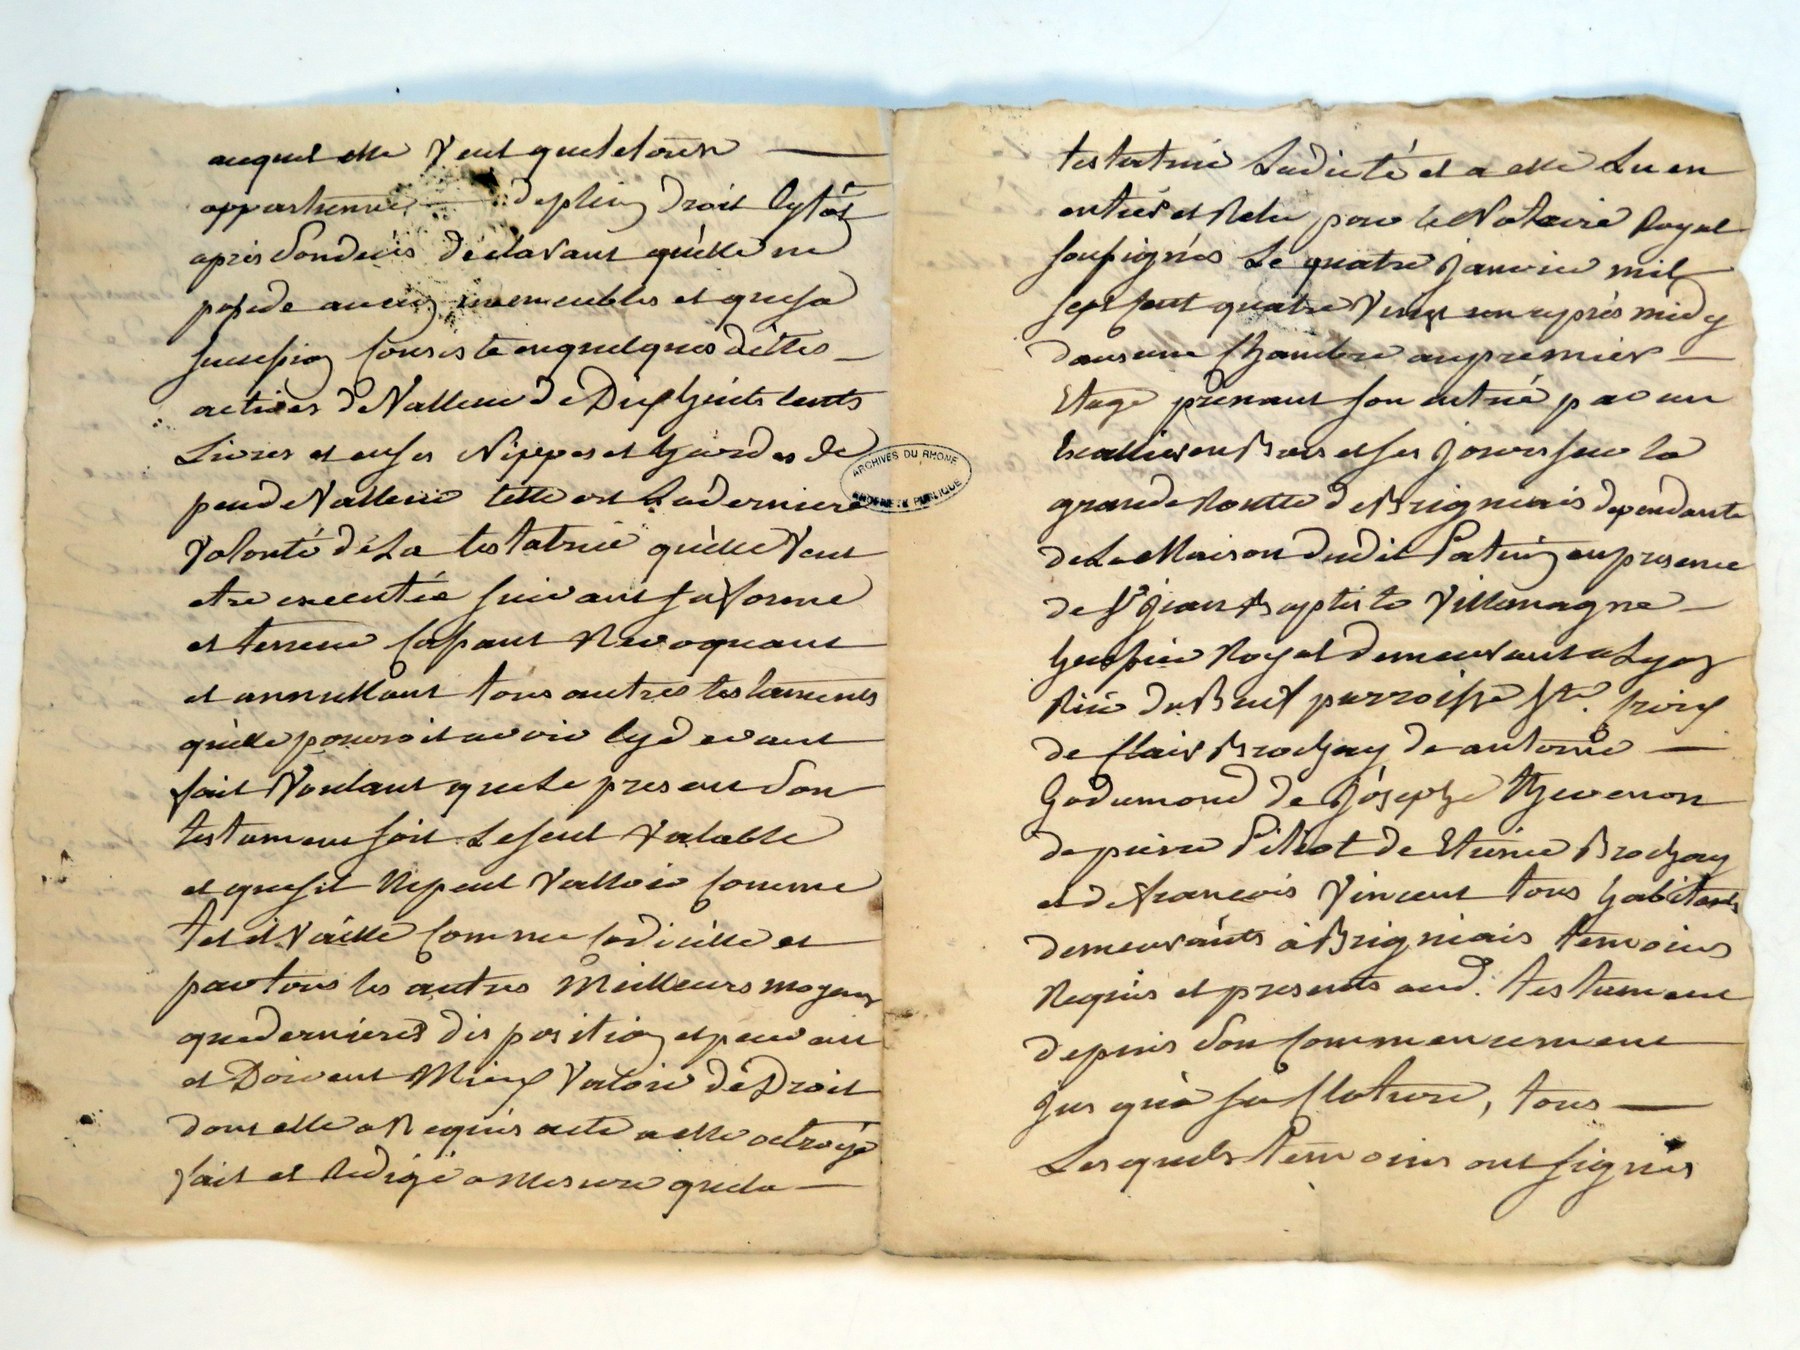 auquel elle Veut que le tout
appartienne de plein Droit sytôt
apres son decès declarant quelle ne
possede aucun immeubles et que sa
succession Consiste en quelques dettes
actives de Valleur de Dix huit Cents
Livres et en ses Nippes et hardes de
peu de Valleur telle est La derniere
Volonté de La testatrice quelle Veut
etre executée suivant sa forme
et teneur Cassant Revoquant
et annullant tous autres testaments
quelle pouroit avoir cy devant
fait Voulant que Le present son
testament soit Le seul Valable
et que sil Ne peut Valloir Comme
tel il Vaille Comme Codicille et
par tous les autres Meilleurs moyens
que dernieres disposition et peuvent
et Doivent Mieux Valoir de Droit
dont elle a Requis acte a elle octroyé
fait et Redigé a Mesure que la
testatrice La dicté et a elle Lu en
entier et Relu par le Notaire Royal
soussignés Le quatre janvier mil
sept cent quatre Vingt un après midy
dans une Chambre au premier
Etage prenant son entrée par un
Escallier en Bois et ses jours sur la
grande Routte de Brignais dependante
de La Maison dudit en presence
de Sr Jean Baptiste Villemagne
huissier Royal demeurant a Lyon
Rue du Beuf parroisse Ste. Croix
de Clair Brochay de antoine
Godumond de Joseph Thevenon
de pierre Pillot de Etienne Brochay
et de francois Vincent tous habitants
demeurants à Brigniais temoins
Requis et presents aud. testament
depuis son Commencement
jusquà sa Cloture, tous
Lesquels temoins ont signés
ARCHIVES DU RHONE